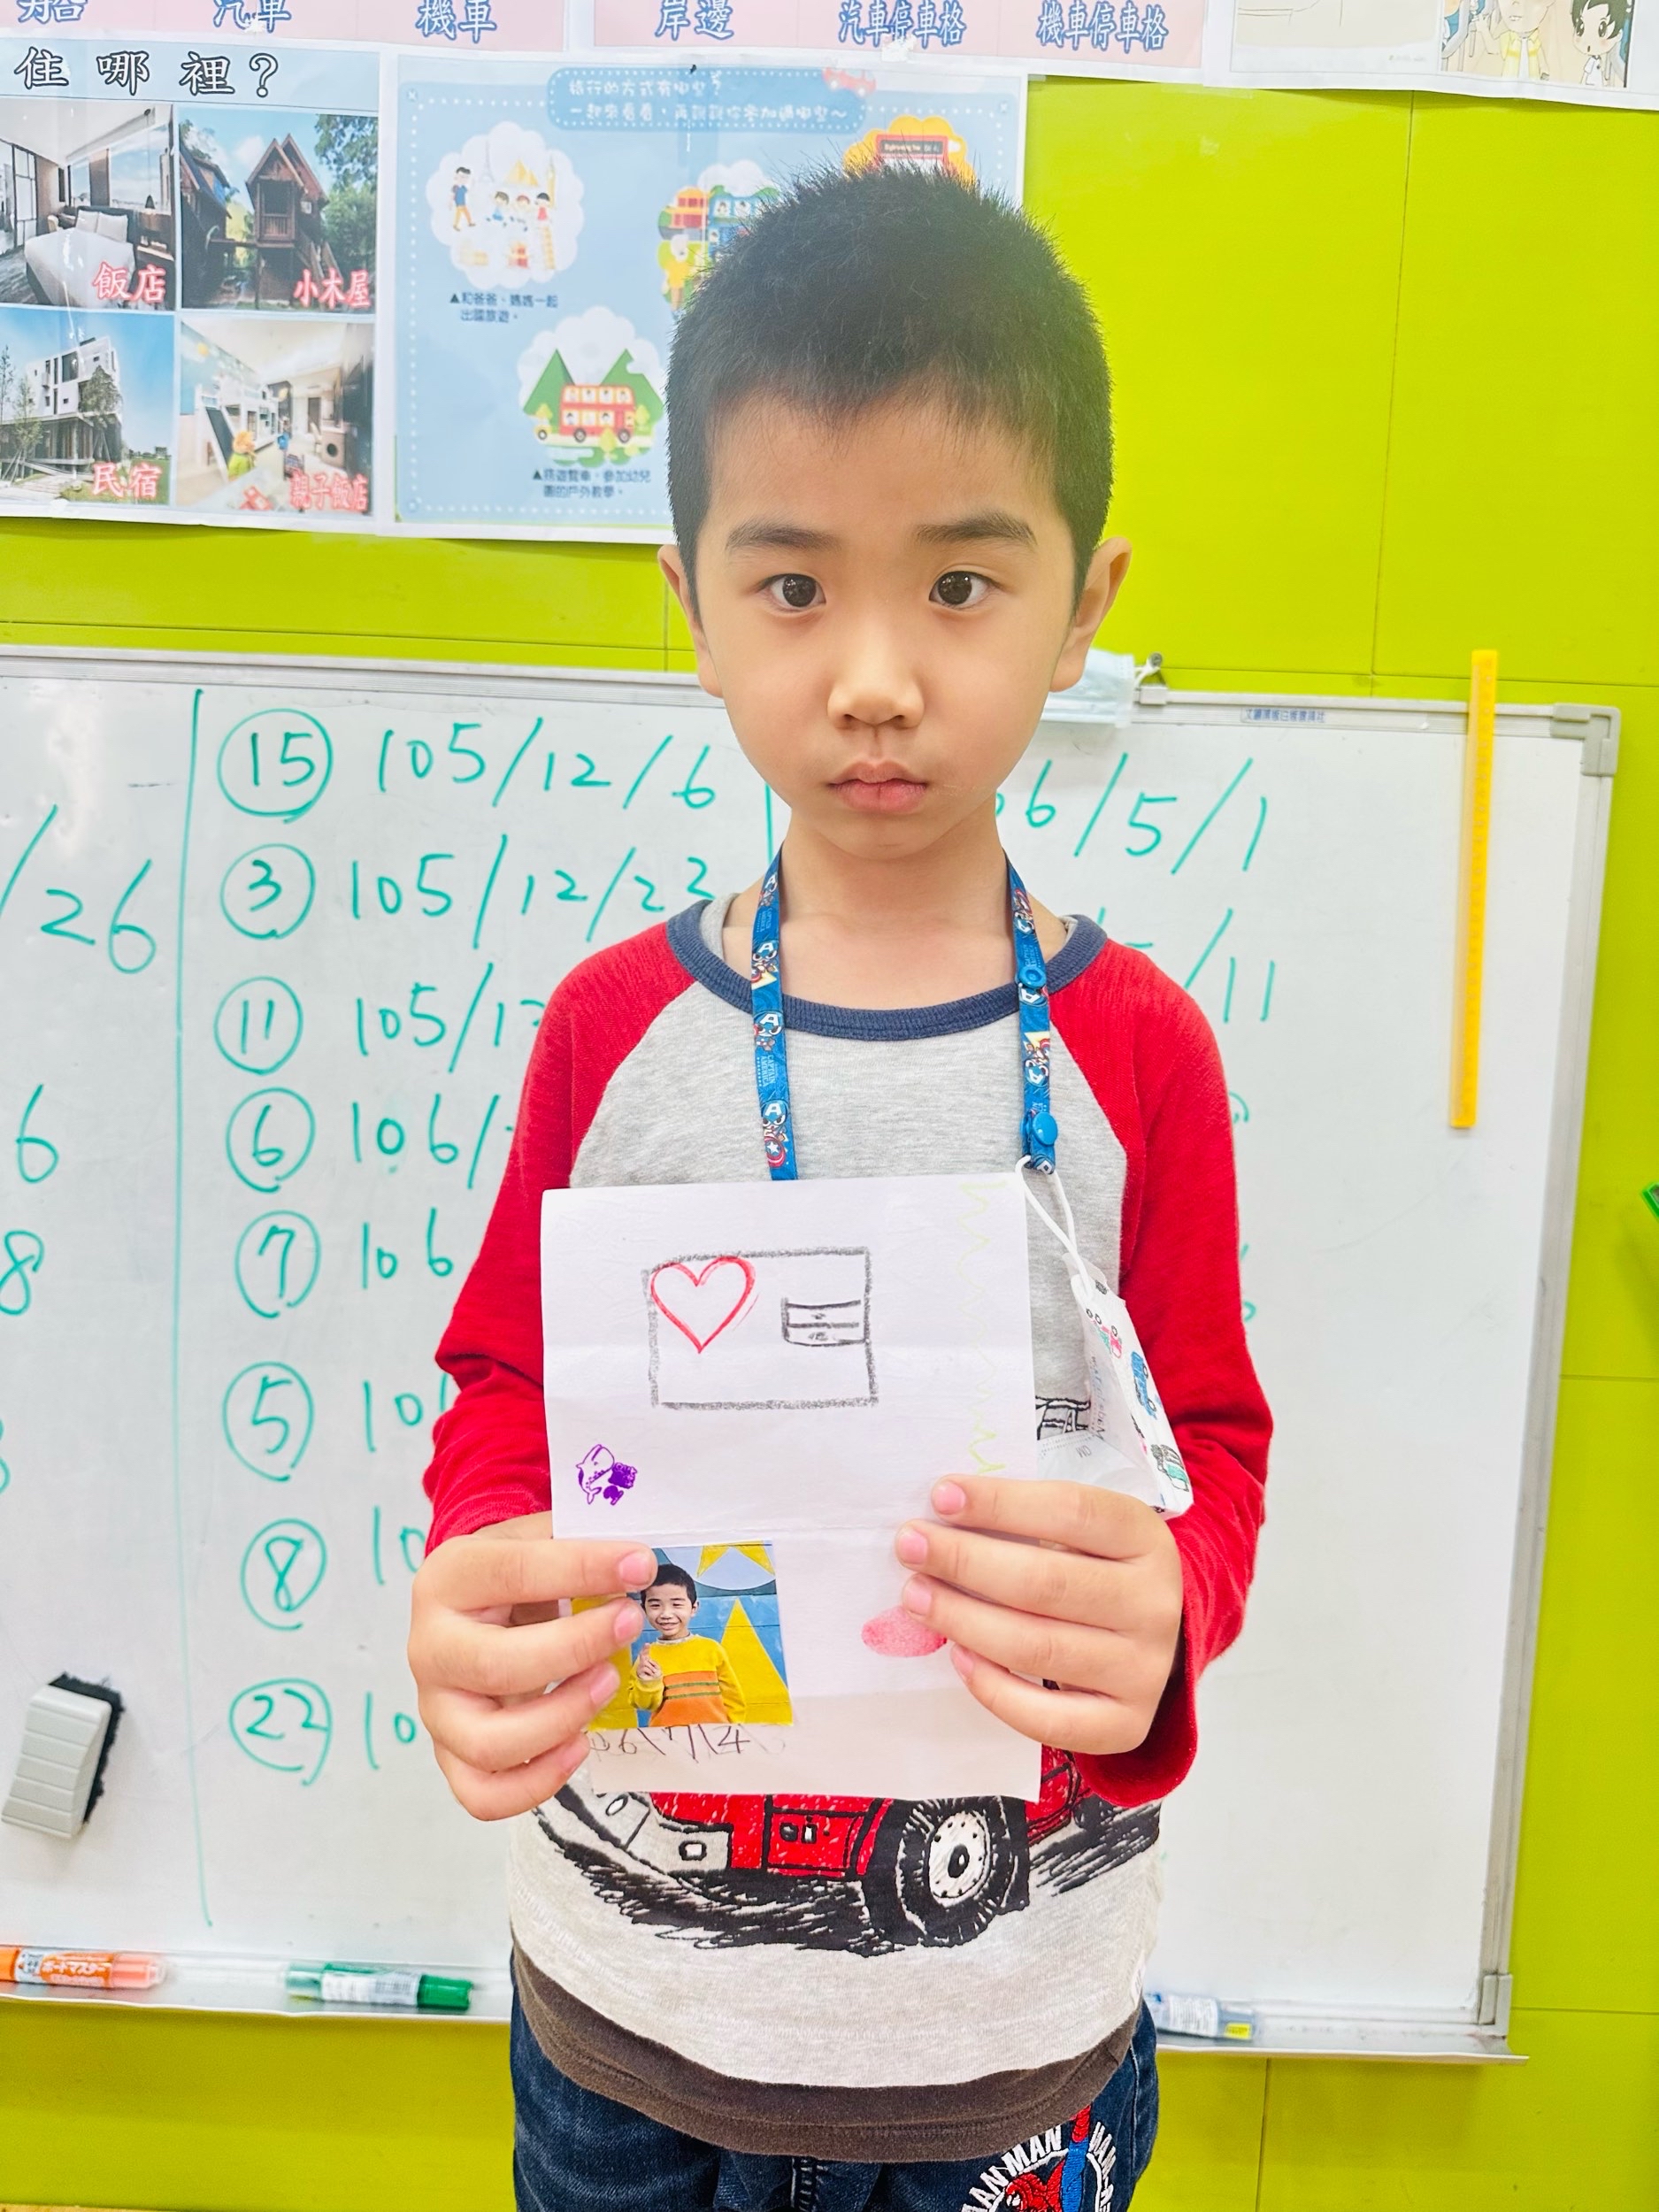 汽車
機車
岸邊
汽車停車格
機車停車格
住哪裡？
飯店
小木屋
民宿
親子飯店
旅行的方式有哪些？
一起來看看，再說說你參加過哪些～
▲和爸爸、媽媽一起
出國旅遊。
▲搭遊覽車，參加幼兒
園的戶外教學。
/26
6
8
15 105/12/6
3 105/12/22
11 105/12
6 106/
7 106
5 106
8 10
22 10
6/5/1
/11
CAPTAIN
AMERICA
06/7/4
ボードマスター
MAN